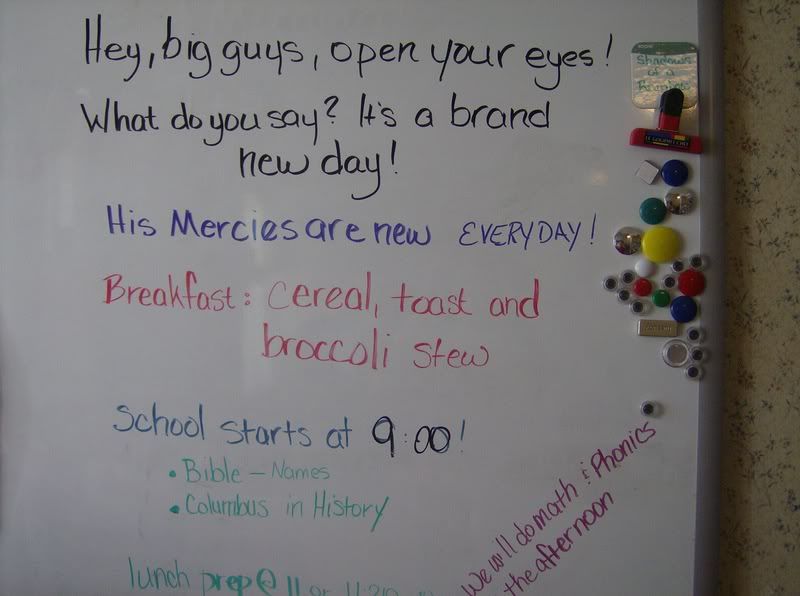 Hey, big guys, open your eyes!
What do you say? It's a brand
new day!
His Mercies are new EVERYDAY!
Breakfast: cereal, toast and
broccoli stew
School starts at 9:00!
• Bible - Names
• Columbus in History
We will do math & Phonics
the afternoon
lunch prep @ 11 or 11:30
Shadows
of a